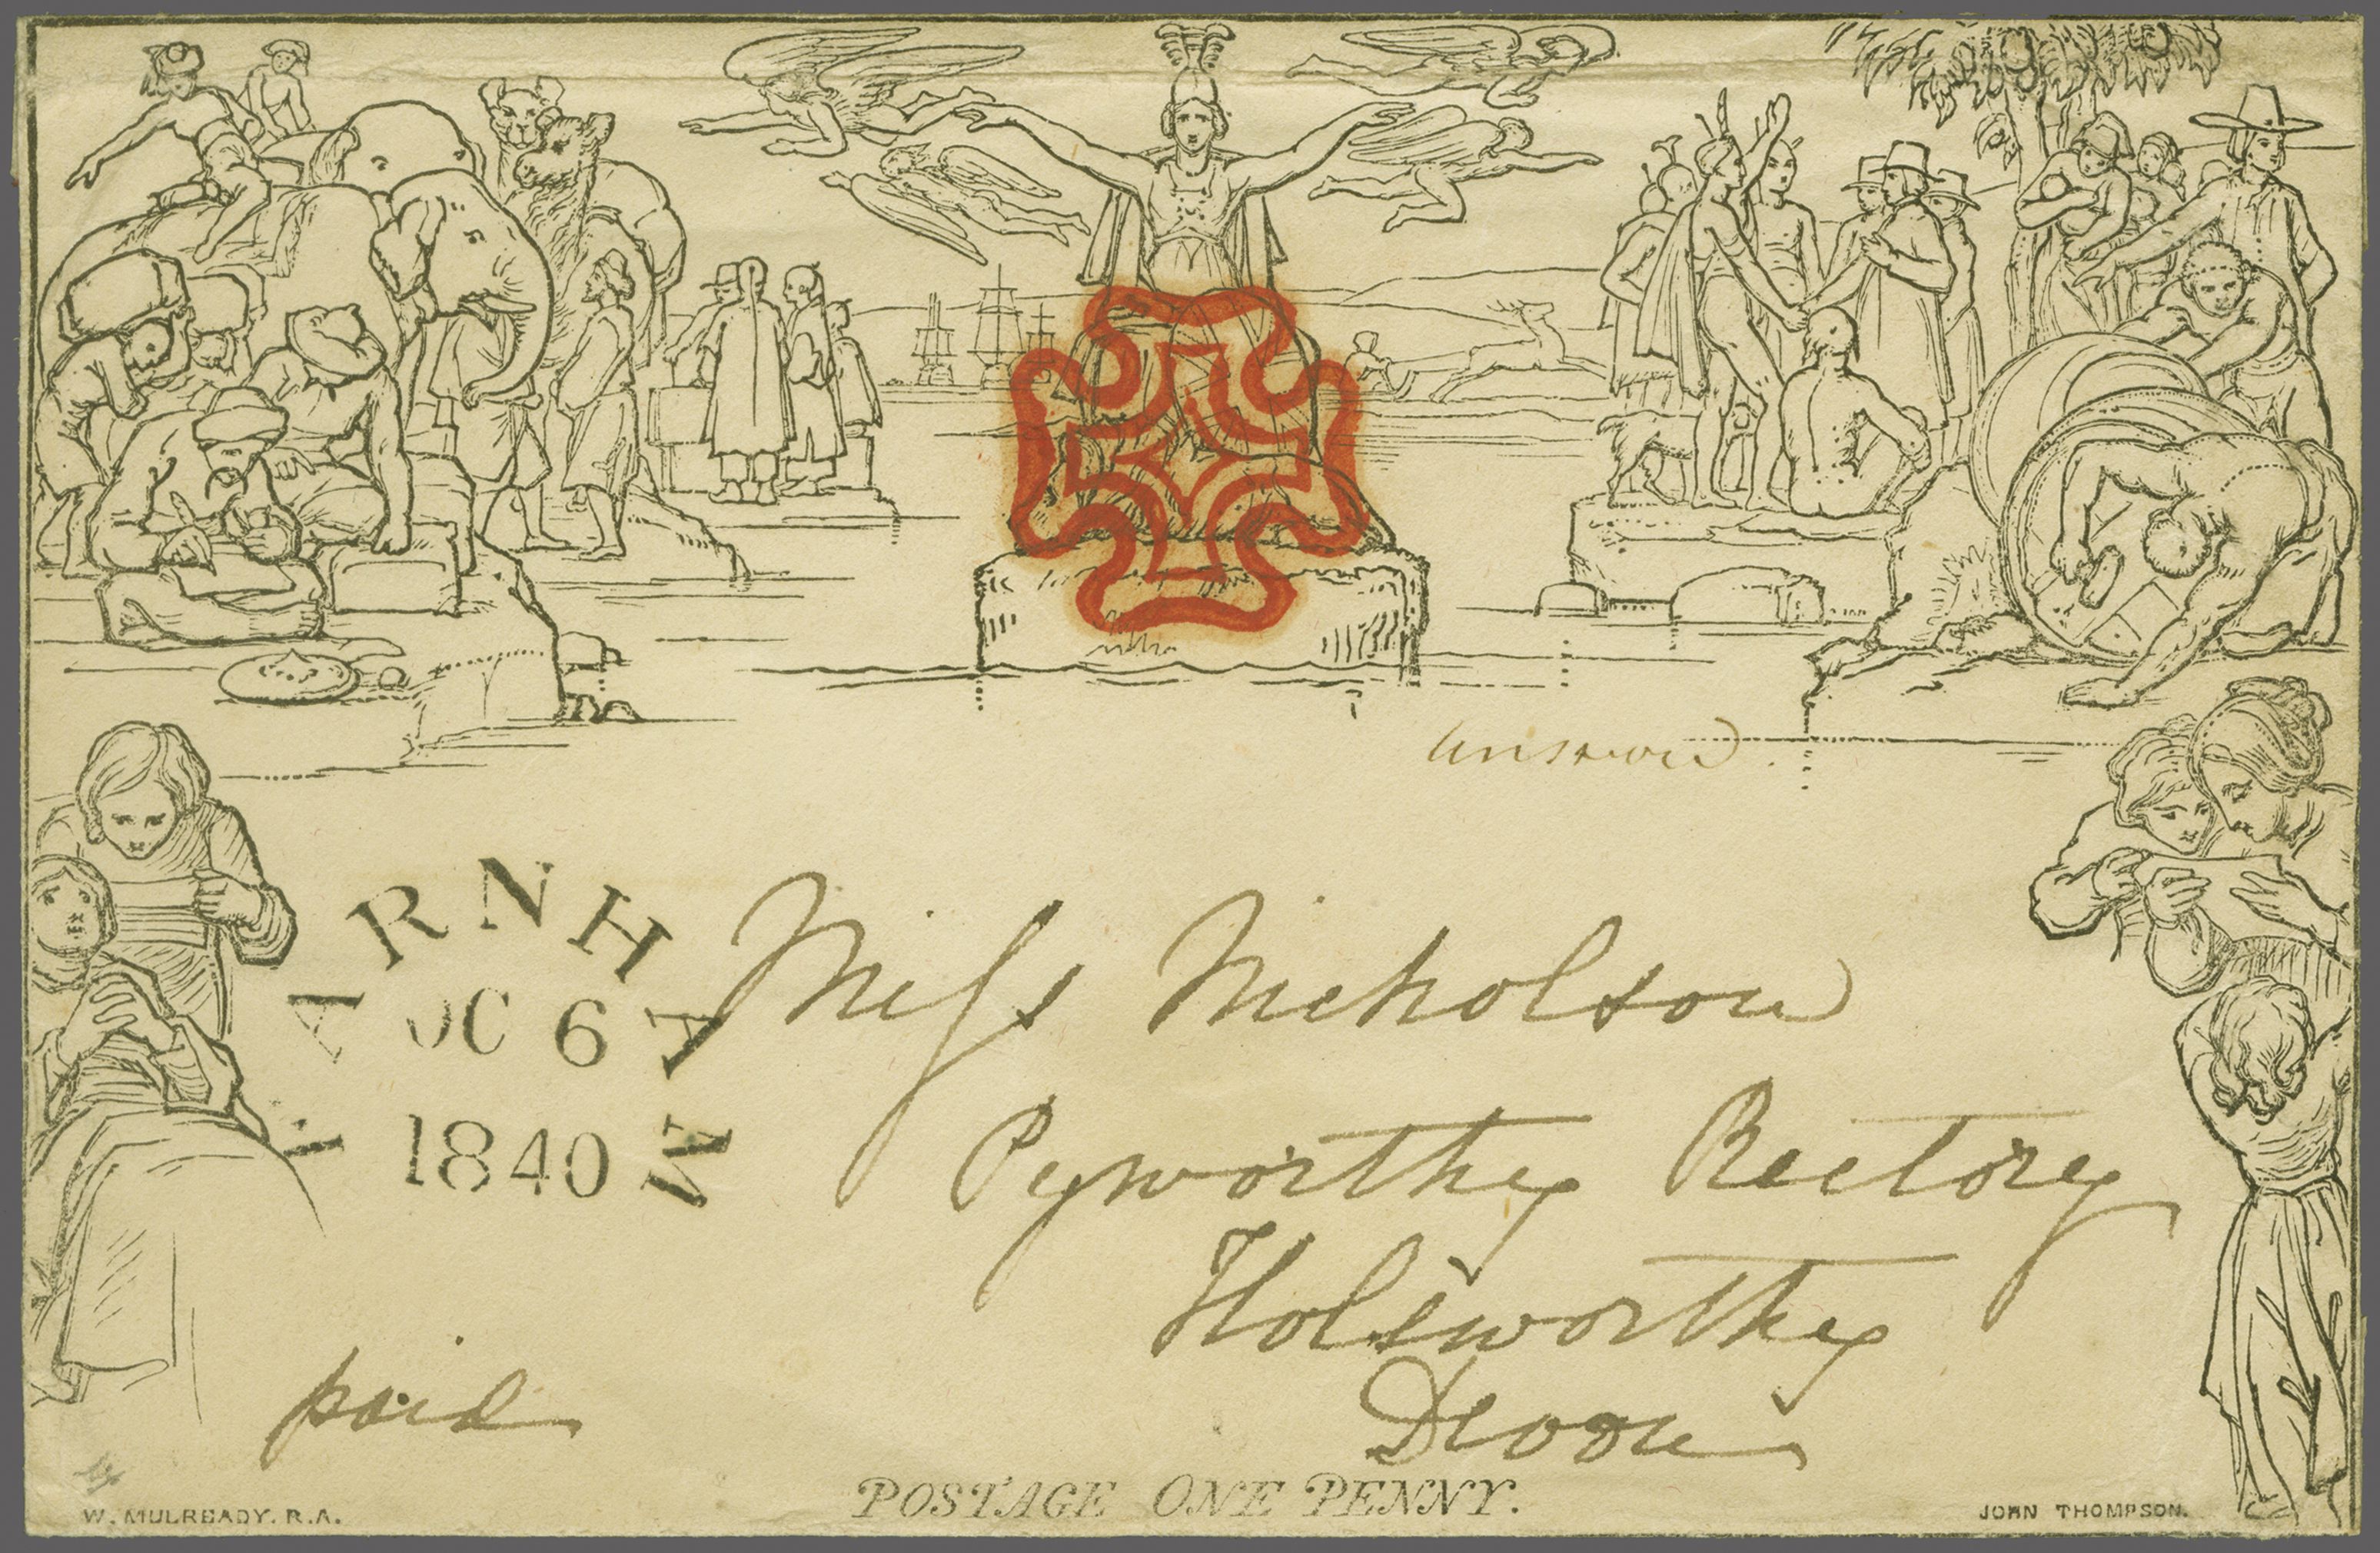 Answered.
FARNHAM
OC 6
1840
Miss Nicholson
Pyworthy Rectory
Holsworthy
Devon
paid
POSTAGE ONE PENNY.
W. MULREADY. R.A.
JOHN THOMPSON.